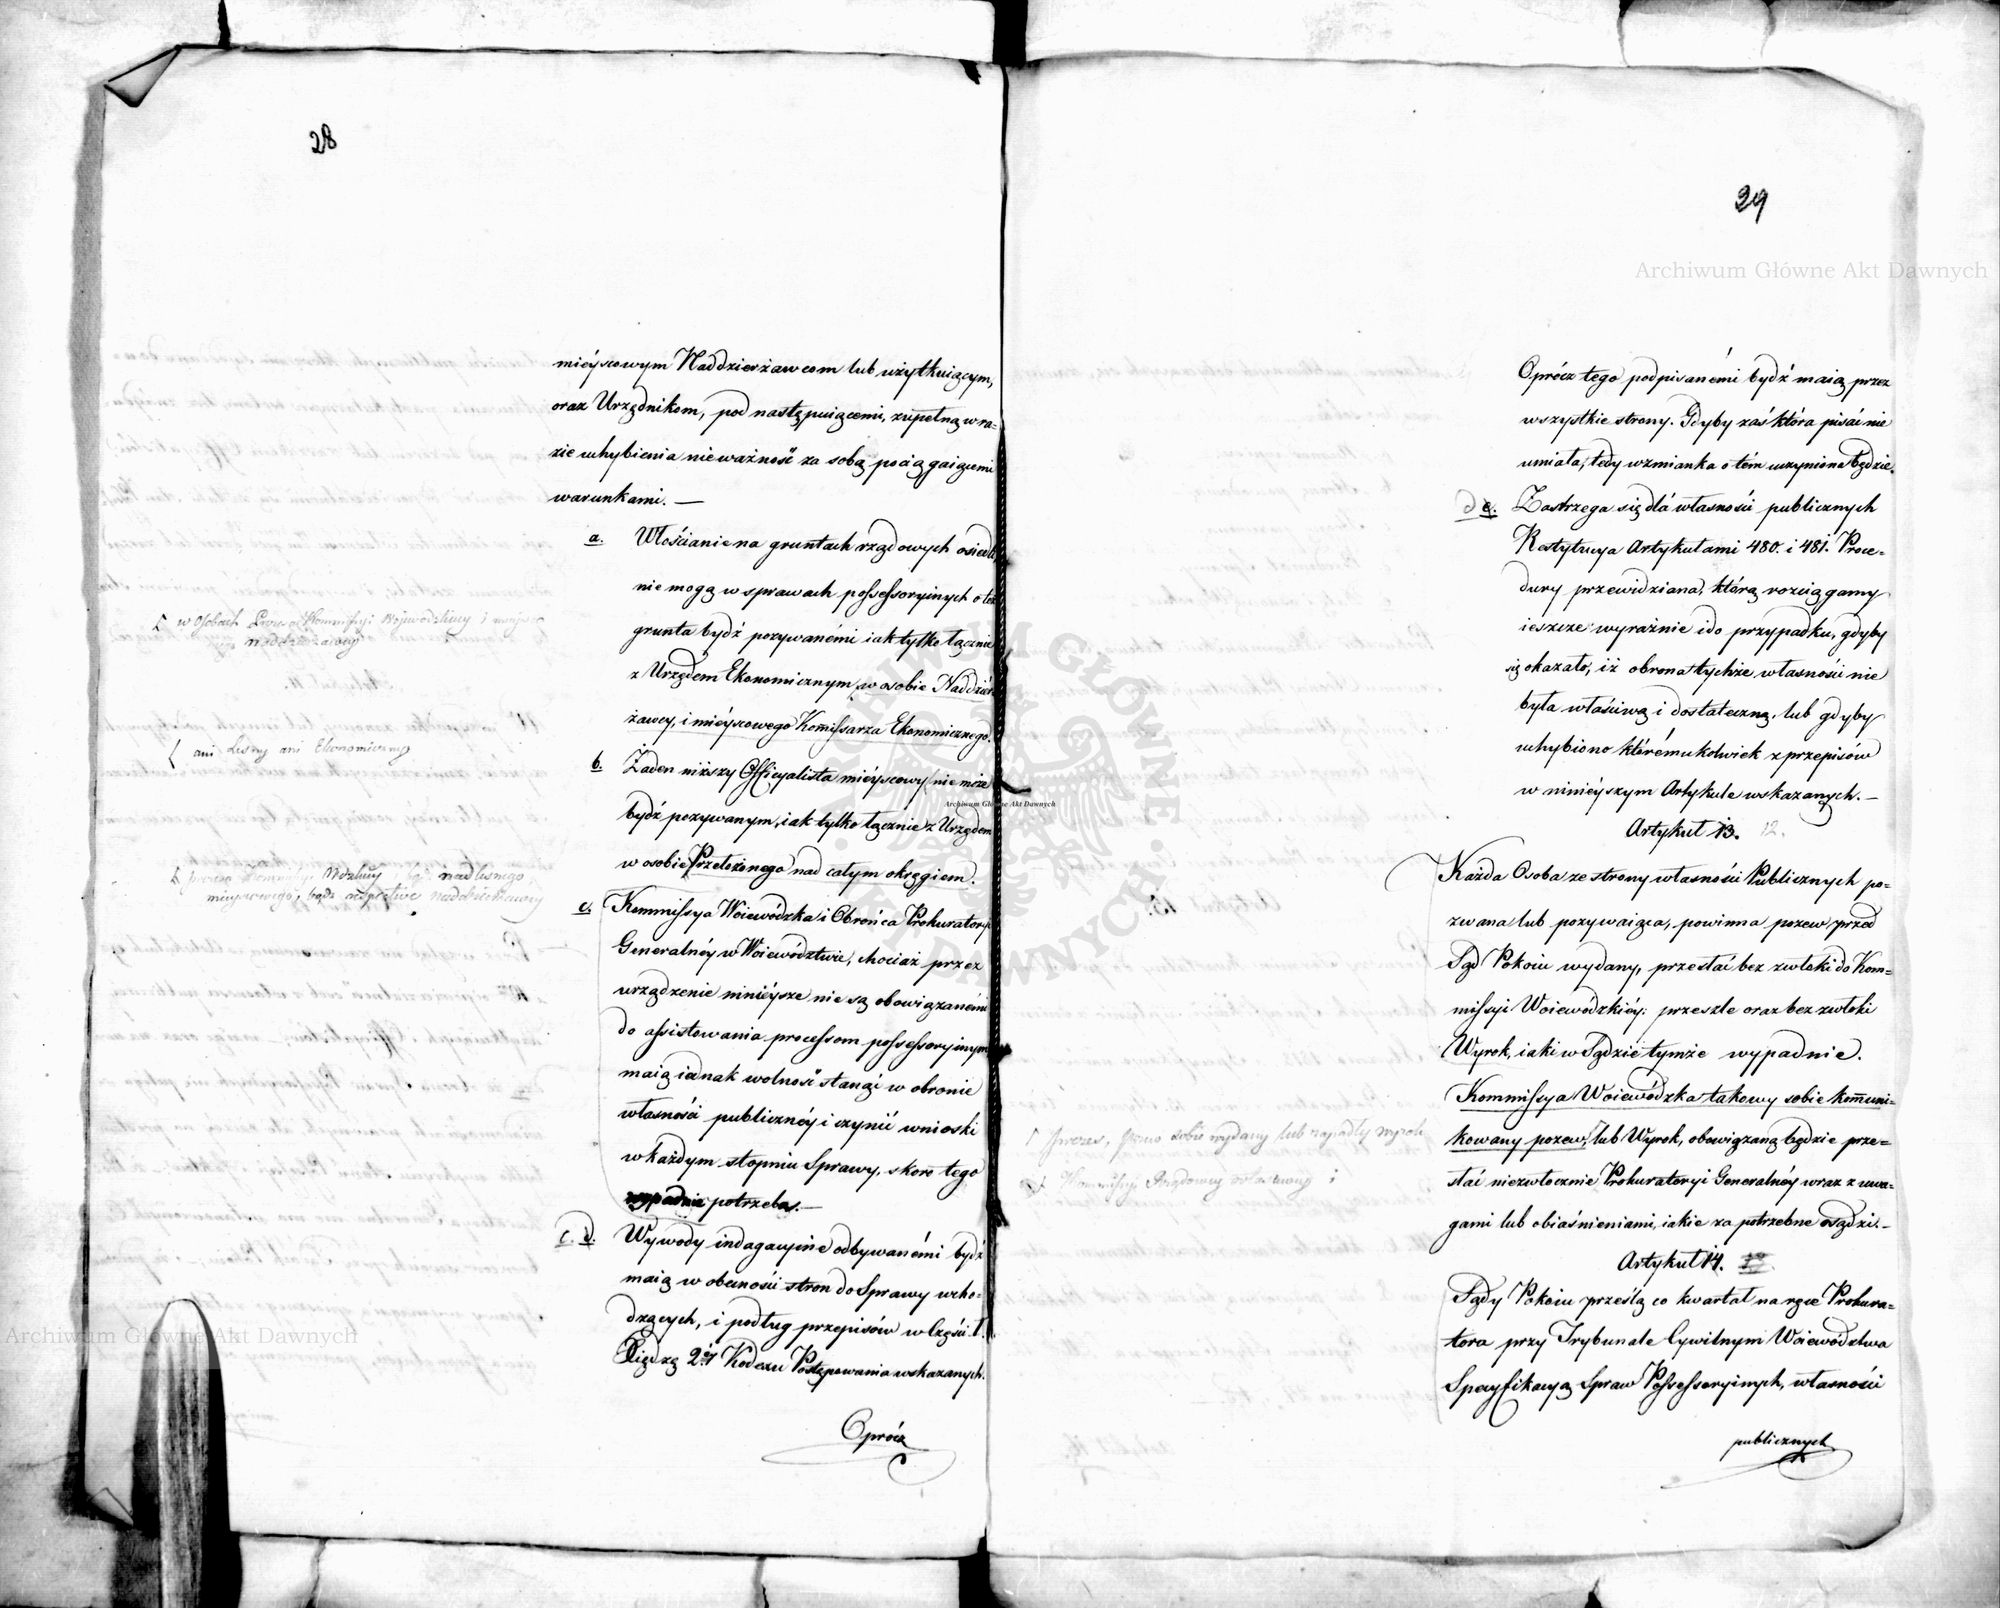 28
mieyscowym Naddzierżawcom lub użytkuiącym,
oraz Urzędnikom, pod następuiącemi, zupełną w ra=
zie uchybienia nieważność za sobą pociągaiącemi
warunkami. —
a. Włościanie na gruntach rządowych osiedli
nie mogą w sprawach possessoryinych o też
grunta bydź pozywanémi iak tylko łącznie
z Urzędem Ekonomicznym, w osobie Naddzier=
żawcy, i mieyscowego Kommissarza Ekonomicznego.
w Osobach Kommissyi Wojewodzkiey i mieysco
wego Naddzierżawcy
b. Żaden niższy Officyalista mieyscowy nie może
ani Leśny ani Ekonomiczny
bydź pozywanym, iak tylko łącznie z Urzędem
w osobie Przełożonego nad całym okręgiem.
Kommissyi Wdzkiey i bądź nadleśnego
mieyscowego, bądź nadzierżawcy
c. Kommissya Woiewódzka i Obrońca Prokuratoryi
Generalnéy w Woiewództwie, chociaż przez
urządzenie ninieysze nie są obowiązanémi
do assistowania processom possessoryinym
maią iednak wolność stanąć w obronie
własności publicznéy i czynić wnioski
w każdym stopniu Sprawy, skoro tego
wypadnie potrzeba. —
c. d. Wywody indagacyine odbywanémi bydź
maią w obecności stron do Sprawy wcho=
dzących, i podług przepisów w Części I.
Xiędzę 2éy Kodexu Postępowania wskazanych.
Oprócz
29
Archiwum Główne Akt Dawnych
Oprócz tego podpisanémi bydź maią przez
wszystkie strony. Gdyby zaś która pisać nie
umiała, tedy wzmianka o tém uczyniona będzie.
d e. Zastrzega się dla własności publicznych
Restytucya Artykułami 480. i 481. Proce=
dury przewidziana, którą rozciągamy
ieszcze wyraźnie i do przypadku, gdyby
się okazało, iż obrona tychże własności nie
była właściwą i dostateczną, lub gdyby
uchybiono którémukolwiek z przepisów
w ninieyszym Artykule wskazanych. —
Artykuł 13. 12.
Każda Osoba ze strony własności Publicznych po=
zwana lub pozywaiąca, powinna pozew przed
Sąd Pokoiu wydany, przesłać bez zwłoki do Kom=
missyi Woiewódzkiéy: przeszle oraz bez zwłoki
Wyrok, iaki w Sądzie tymże wypadnie.
Kommissya Woiewódzka takowy sobie kommuni=
kowany pozew, lub Wyrok, obowiązaną będzie prze=
słać niezwłocznie Prokuratoryi Generalnéy wraz z uwa=
gami lub obiaśnieniami, iakie za potrzebne osądzi. —
sobie wydany lub zapadły wyrok
Kommissyi Rządowey właściwey i
Artykuł 14.
Sądy Pokoiu prześlą co kwartał na ręce Prokura=
tora przy Trybunale Cywilnym Woiewództwa
Specyfikacyą Spraw Possessoryinych, własności
publicznych
Archiwum Główne Akt Dawnych
Archiwum Główne Akt Dawnych
ARCHIWUM GŁÓWNE AKT DAWNYCH